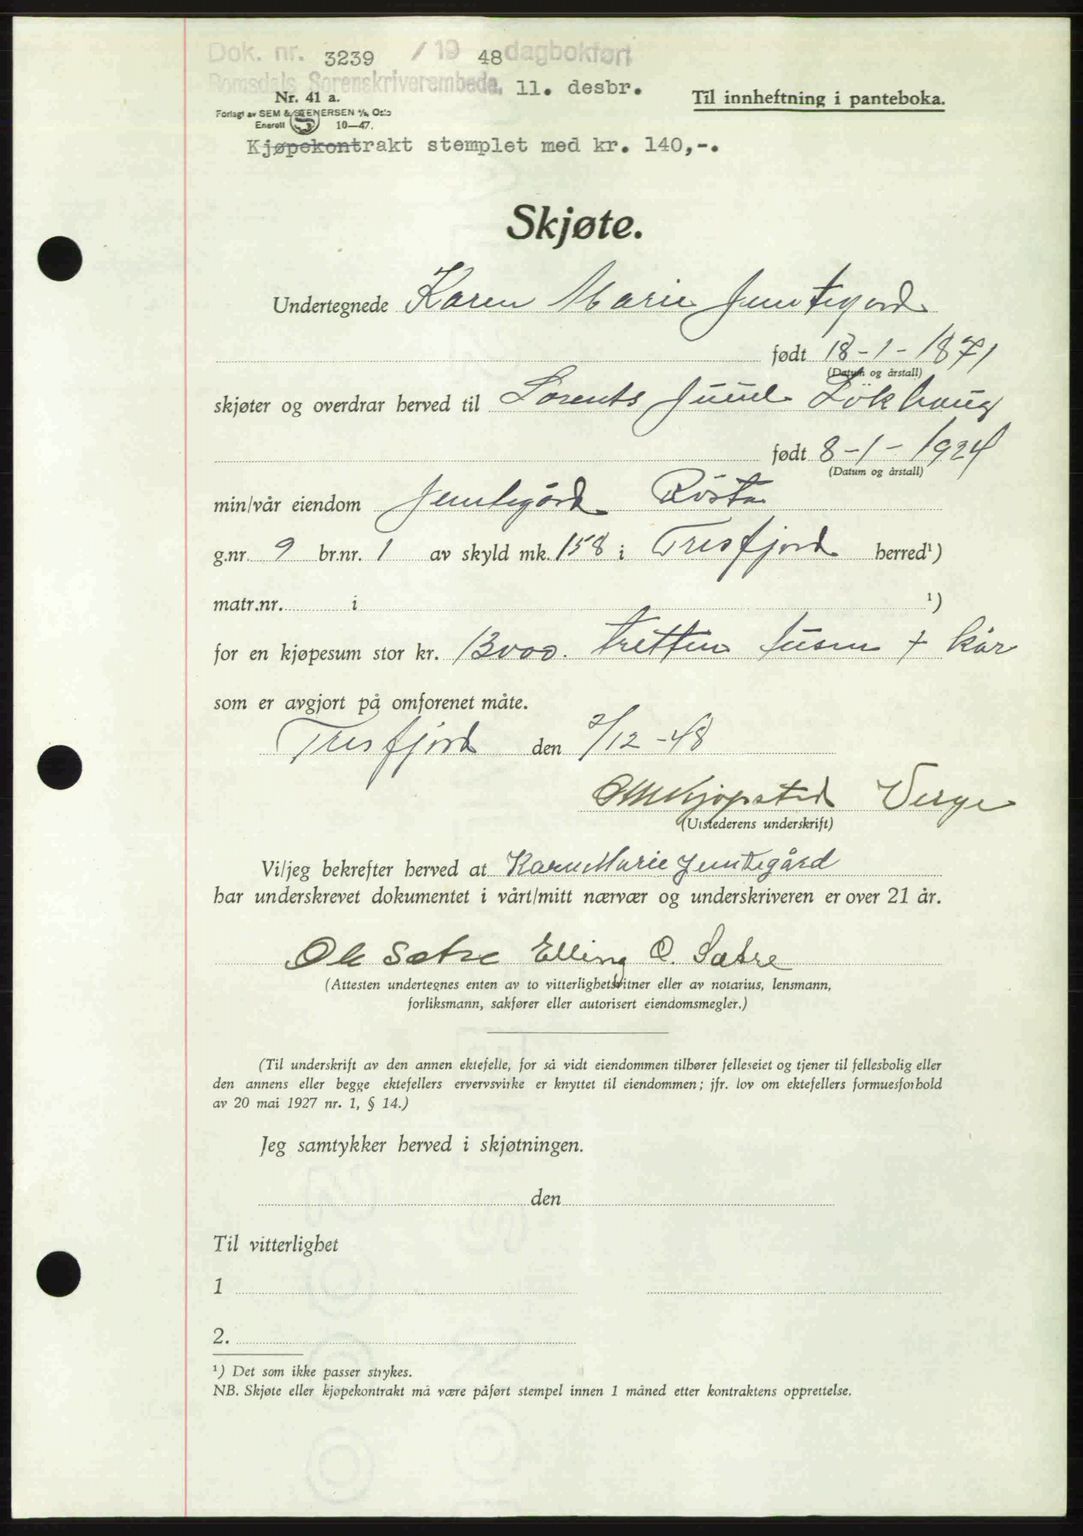 Dok. nr. 3239 / 19 48 dagbokført
Romsdals Sorenskriverembede, 11. desbr.
Nr. 41 a.
Til innheftning i panteboka.
Forlagt av SEM & STENERSEN A/S, Oslo
Enerett 10—47.
Kjøpekontrakt stemplet med kr. 140,-.
Skjøte.
Undertegnede Karen Marie Jemtegård
født 18-1-1871
(Datum og årstall)
skjøter og overdrar herved til Lorents Juul Løkhaug
født 8-1-1924
(Datum og årstall)
min/vår eiendom Jemtegård Røsta
g.nr. 9 br.nr. 1 av skyld mk. 158 i Tresfjord herred¹)
matr.nr. i ¹)
for en kjøpesum stor kr. 13000. tretten tusen + kår
som er avgjort på omforenet måte.
Tresfjord den 2/12-48
Kjøpstad Verge
(Utstederens underskrift)
Vi/jeg bekrefter herved at Karen Marie Jemtegård
har underskrevet dokumentet i vårt/mitt nærvær og underskriveren er over 21 år.
Ole Sætre Elling O. Sætre
(Attesten undertegnes enten av to vitterlighetsvitner eller av notarius, lensmann,
forliksmann, sakfører eller autorisert eiendomsmegler.)
(Til underskrift av den annen ektefelle, for så vidt eiendommen tilhører felleseiet og tjener til fellesbolig eller
den annens eller begge ektefellers ervervsvirke er knyttet til eiendommen; jfr. lov om ektefellers formuesforhold
av 20 mai 1927 nr. 1, § 14.)
Jeg samtykker herved i skjøtningen.
den
Til vitterlighet
1
2.
¹) Det som ikke passer strykes.
NB. Skjøte eller kjøpekontrakt må være påført stempel innen 1 måned etter kontraktens opprettelse.